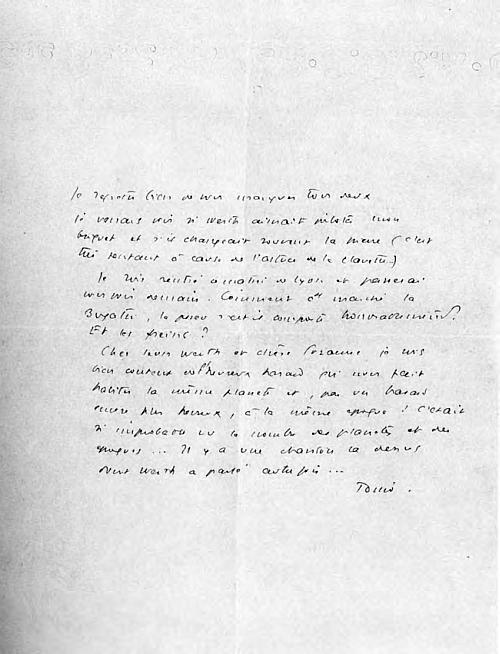 Je regrette bien de vous manquer tous deux
je voulais voir si Werth aimait piloter mon
briquet et s'il changeait souvent la pierre (c'est
très tentant à cause de l'astuce de la
Je suis rentré ce matin de Lyon et passerai
vous voir demain. Comment a marché la
Bugatti, le pneu s'est-il comporté honorablement?
Et les freins?
Cher Léon Werth et chère Suzanne je suis
bien content de l'heureux hasard qui nous fait
habiter la même planète et, par un hasard
encore plus heureux, à la même époque! c'était
si improbable vu le nombre des planètes et des
époques... Il y a une chanson là dessus
dont Werth a parlé autrefois...
Tonio.